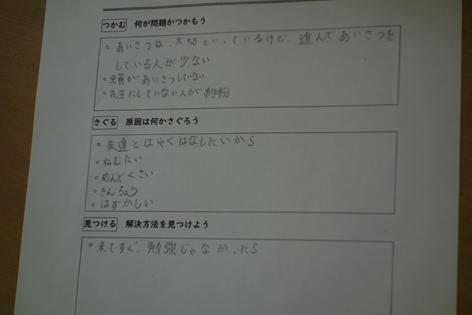 つかむ 何が問題かつかもう
○あいさつは、大切といっているけど、進んであいさつを
している人が少ない
○全員があいさつしていない
○先生にしていない人が約
さぐる 原因は何かさぐろう
○友達とはやくはなしたいから
○ねむたい
○めんどくさい
○きんちょう
○はずかしい
見つける 解決方法を見つけよう
○来てすぐ、勉強じゃなかったら